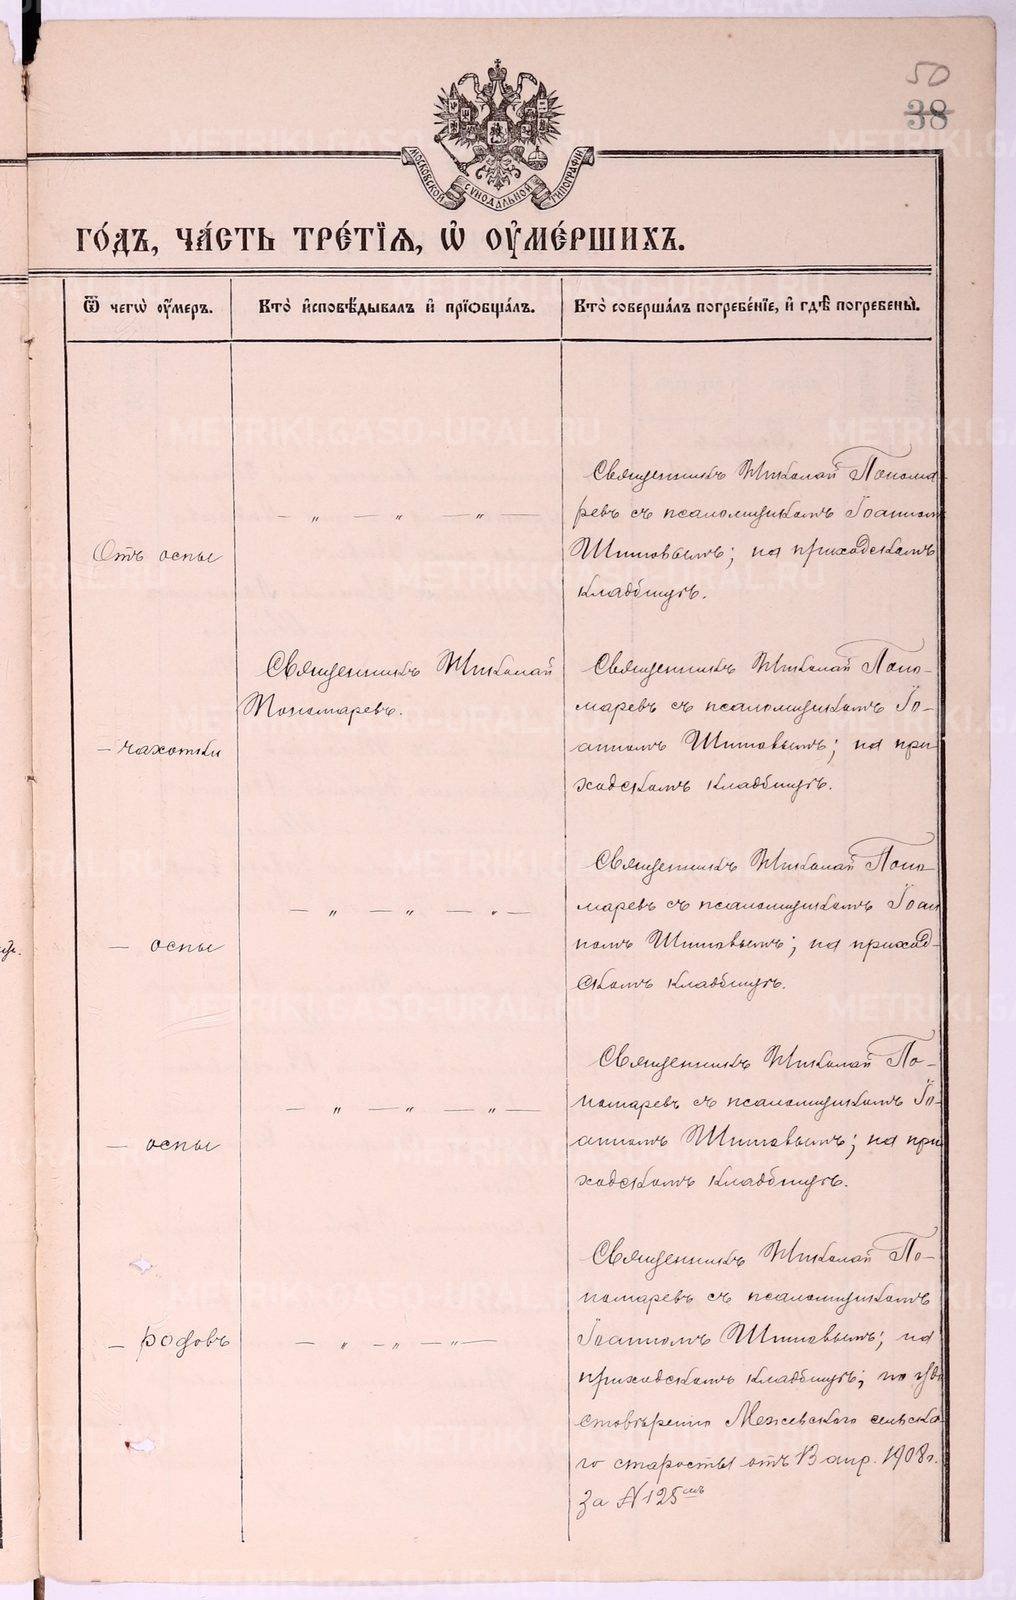 50
38
МОСКОВСКОЙ СѴНОДАЛЬНОЙ ТИПОГРАФІИ
ГО́ДЪ, ЧА́СТЬ ТРЕ́ТІѦ, Ѡ҆ ОУ҆МЕ́РШИХЪ.
Ѿ чегѡ̀ оу҆́меръ.
Кто̀ и҆сповѣ́дывалъ и҆ прїѡбща́лъ.
Кто̀ соверша́лъ погребе́нїе, и҆ гдѣ̀ погребены̀.
Отъ оспы
— „ — „ — „ —
Священникъ Николай Понома-
ревъ съ псаломщикомъ Іоанномъ
Шишовымъ; на приходскомъ
кладбищѣ.
— чахотки
Священникъ Николай
Пономаревъ.
Священникъ Николай Поно-
маревъ съ псаломщикомъ Іо-
анномъ Шишовымъ; на при-
ходскомъ кладбищѣ.
— оспы
— „ — „ — „ —
Священникъ Николай Поно-
маревъ съ псаломщикомъ Іоан-
номъ Шишовымъ; на приход-
скомъ кладбищѣ.
— оспы
— „ — „ — „ —
Священникъ Николай По-
номаревъ съ псаломщикомъ Іо-
анномъ Шишовымъ; на при-
ходскомъ кладбищѣ.
— родовъ
— „ — „ — „ —
Священникъ Николай По-
номаревъ съ псаломщикомъ
Іоанномъ Шишовымъ; на
приходскомъ кладбищѣ; по удо-
стовѣренію Межевского сельска-
го старосты отъ 13 апр. 1908 г.
за № 125 омъ
METRIKI.GASO-URAL.RU